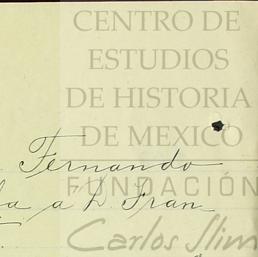 CENTRO DE
ESTUDIOS
DE HISTORIA
DE MEXICO
Fernando
FUNDACIÓN
a D. Fran
Carlos Slim